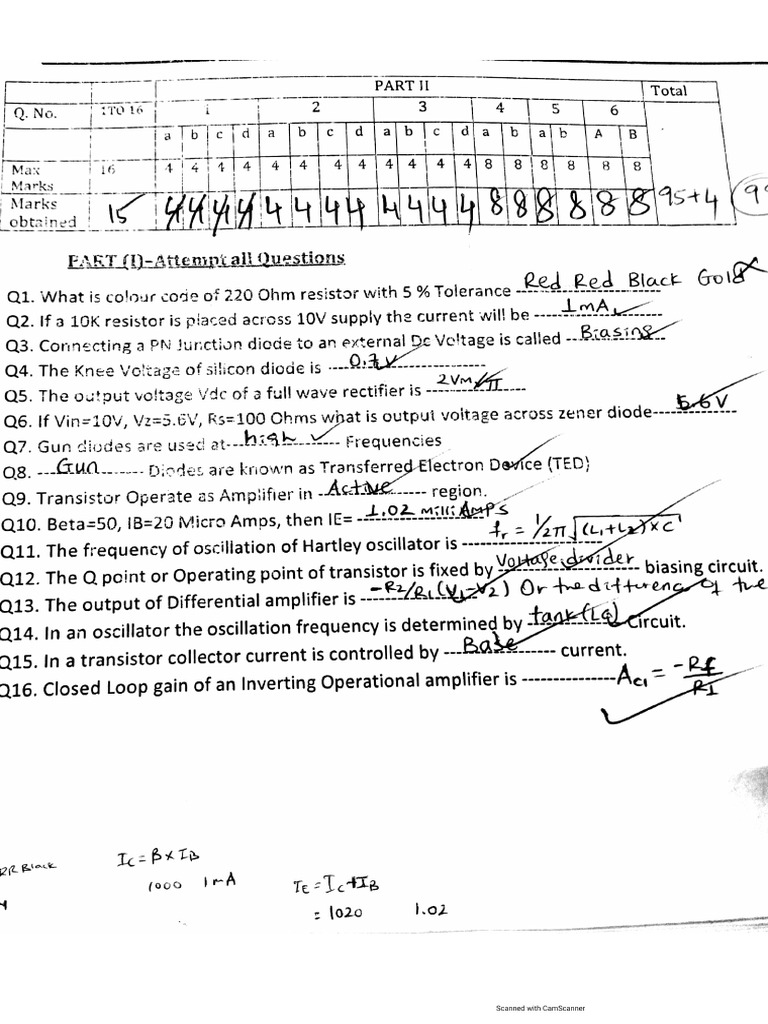 PART II Total
Q. No. 1TO 16 1 2 3 4 5 6
a b c d a b c d a b c d a b a b A B
Max Marks 16 4 4 4 4 4 4 4 4 4 4 4 4 8 8 8 8 8 8
Marks obtained 15 4 4 4 4 4 4 4 4 4 4 4 4 8 8 8 8 8 8 95+4
PART (I)-Attempt all Questions
Q1. What is colour code of 220 Ohm resistor with 5 % Tolerance Red Red Black Gold
Q2. If a 10K resistor is placed across 10V supply the current will be 1mA
Q3. Connecting a PN Junction diode to an external Dc Voltage is called Biasing
Q4. The Knee Voltage of silicon diode is 0.7V
Q5. The output voltage Vdc of a full wave rectifier is 2Vm/π
Q6. If Vin=10V, Vz=5.6V, Rs=100 Ohms what is output voltage across zener diode 5.6 V
Q7. Gun diodes are used at high Frequencies
Q8. Gun Diodes are known as Transferred Electron Device (TED)
Q9. Transistor Operate as Amplifier in Active region.
Q10. Beta=50, IB=20 Micro Amps, then IE= 1.02 Milli AMPS
Q11. The frequency of oscillation of Hartley oscillator is fr = 1/2π√(L1+L2)×C
Q12. The Q point or Operating point of transistor is fixed by Voltage divider biasing circuit.
Q13. The output of Differential amplifier is -R2/R1(V1-V2) Or the difference of the
Q14. In an oscillator the oscillation frequency is determined by tank circuit.
Q15. In a transistor collector current is controlled by Base current.
Q16. Closed Loop gain of an Inverting Operational amplifier is Acl = -Rf/R1
RR Black
IC = B×IB
1000 1mA
IE = IC+IB
= 1020 1.02
Scanned with CamScanner